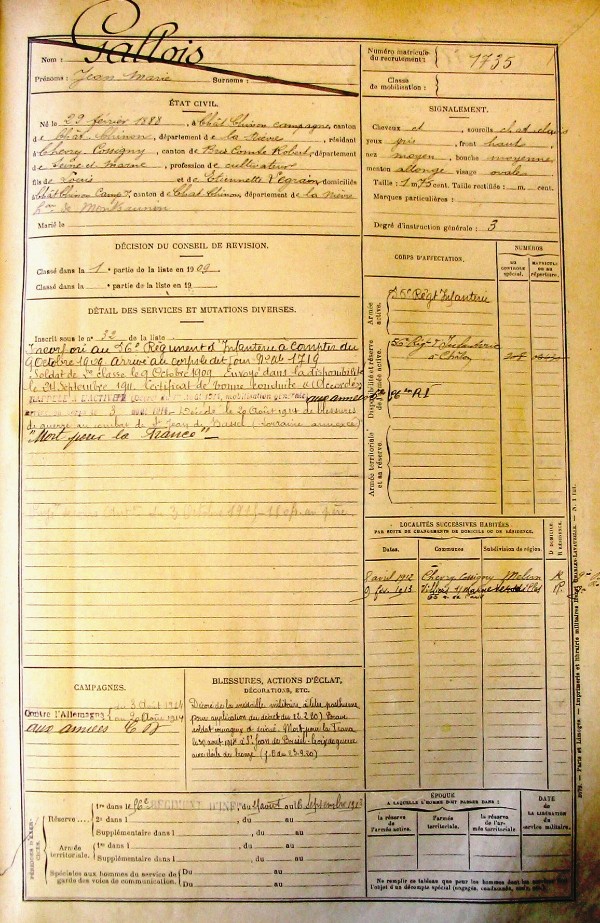 Nom : Gallois
Prénoms : Jean Marie Surnoms :
Numéro matricule du recrutement : 1735
Classe de mobilisation :
ÉTAT CIVIL.
Né le 29 février 1888, à Chât. Chinon campagne, canton
de Chât. Chinon, département de la Nièvre, résidant
à Chevry Cossigny, canton de Brie Comte Robert, département
de Seine et Marne, profession de cultivateur
fils de Louis et de Etiennette Vegrain, domiciliés
à Chât Chinon Camp., canton de Chat Chinon, département de la Nièvre
Marié le
SIGNALEMENT.
Cheveux et sourcils chat. clairs
yeux gris, front haut
nez moyen, bouche moyenne
menton allongé visage ovale
Taille : 1 m. 75 cent. Taille rectifiée : m. cent.
Marques particulières :
Degré d'instruction générale : 3
DÉCISION DU CONSEIL DE REVISION.
Classé dans la 1e partie de la liste en 1909
Classé dans la e partie de la liste en 19
DÉTAIL DES SERVICES ET MUTATIONS DIVERSES.
Inscrit sous le n° 22 de la liste
Incorporé au Régiment d'Infanterie à compter du
9 Octobre 1909. Arrivé au corps le dit jour N° Mle 1719
Soldat de 2e classe le 9 Octobre 1909. Envoyé dans la disponibilité
le 24 Septembre 1911. Certificat de bonne conduite "Accordé"
RAPPELÉ A L'ACTIVITÉ mobilisation générale aux armées
3 août 1914. Décédé le 20 Août 1914 de blessures
de guerre au combat de St Jean de Bassel (Lorraine annexée)
"Mort pour la France"
du 3 Octobre 1914
CORPS D'AFFECTATION.
NUMÉROS
AU CONTRÔLE SPÉCIAL.
MATRICULE OU AU RÉPERTOIRE.
Armée active.
Régt Infanterie
Disponibilité et réserve de l'armée active.
56e Rég. d'Infanterie
à Chalon
R.I
Armée territoriale et sa réserve.
LOCALITÉS SUCCESSIVES HABITÉES
PAR SUITE DE CHANGEMENTS DE DOMICILE OU DE RÉSIDENCE.
Dates. Communes Subdivision de région. D DOMICILE. R RÉSIDENCE.
8 avril 1912 Chevry Cossigny Melun R
9 fév. 1913 Villiers s/ Marne R.
CAMPAGNES.
Contre l'Allemagne du 3 Août 1914
au 20 Août 1914
aux armées
BLESSURES, ACTIONS D'ÉCLAT,
DÉCORATIONS, ETC.
Décoré de la médaille militaire à titre posthume
pour application du décret du Brave
soldat Mort pour la France
le 20 août 1914 à St Jean de Bassel. Croix de guerre
avec étoile de bronze
PÉRIODES D'EXERCICES.
Réserve
1re dans le 56e RÉGIMENT D'INFIE, du août au 16 Septembre 1913
2e dans l , du au
Supplémentaire dans l , du au
Armée territoriale.
1re dans l , du au
Supplémentaire dans l , du au
Spéciales aux hommes du service de garde des voies de communication.
Du au
Du au
ÉPOQUE
A LAQUELLE L'HOMME DOIT PASSER DANS :
la réserve de l'armée active.
l'armée territoriale.
la réserve de l'armée territoriale
DATE
DE LA LIBÉRATION
du service militaire.
Ne remplir ce tableau que pour les hommes dont les services font
l'objet d'un décompte spécial (engagés, condamnés, omis, etc.)
Paris et Limoges. — Imprimerie et librairie militaires Henri CHARLES-LAVAUZELLE.